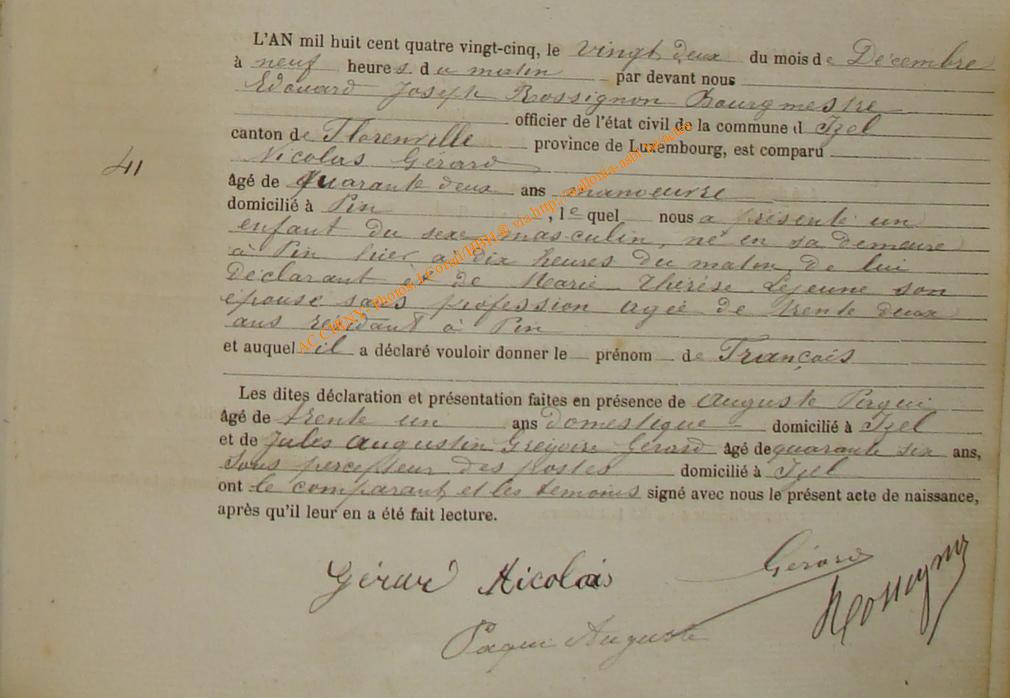 L'AN mil huit cent quatre vingt-cinq, le vingt deux du mois de Décembre
à neuf heures du matin par devant nous
Edouard Joseph Rossignon Bourgmestre
officier de l'état civil de la commune d Izel
canton de Florenville province de Luxembourg, est comparu
Nicolas Gérard
41
âgé de quarante deux ans manoeuvre
domicilié à Pin, lequel nous a présenté un
enfant du sexe masculin, né en sa demeure
à Pin hier à dix heures du matin de lui
déclarant et de Marie Thérèse Lejeune son
épouse sans profession agée de trente deux
ans résidant à Pin
et auquel il a déclaré vouloir donner le prénom de François
Les dites déclaration et présentation faites en présence de Auguste
âgé de trente un ans domestique domicilié à Izel
et de Jules Augustin Grégoire Gérard âgé de quarante six ans,
Sous percepteur des postes domicilié à Izel
ont le comparant et les témoins signé avec nous le présent acte de naissance,
après qu'il leur en a été fait lecture.
Gérard Nicolas
Gérard
Rossignon
Paqui Auguste